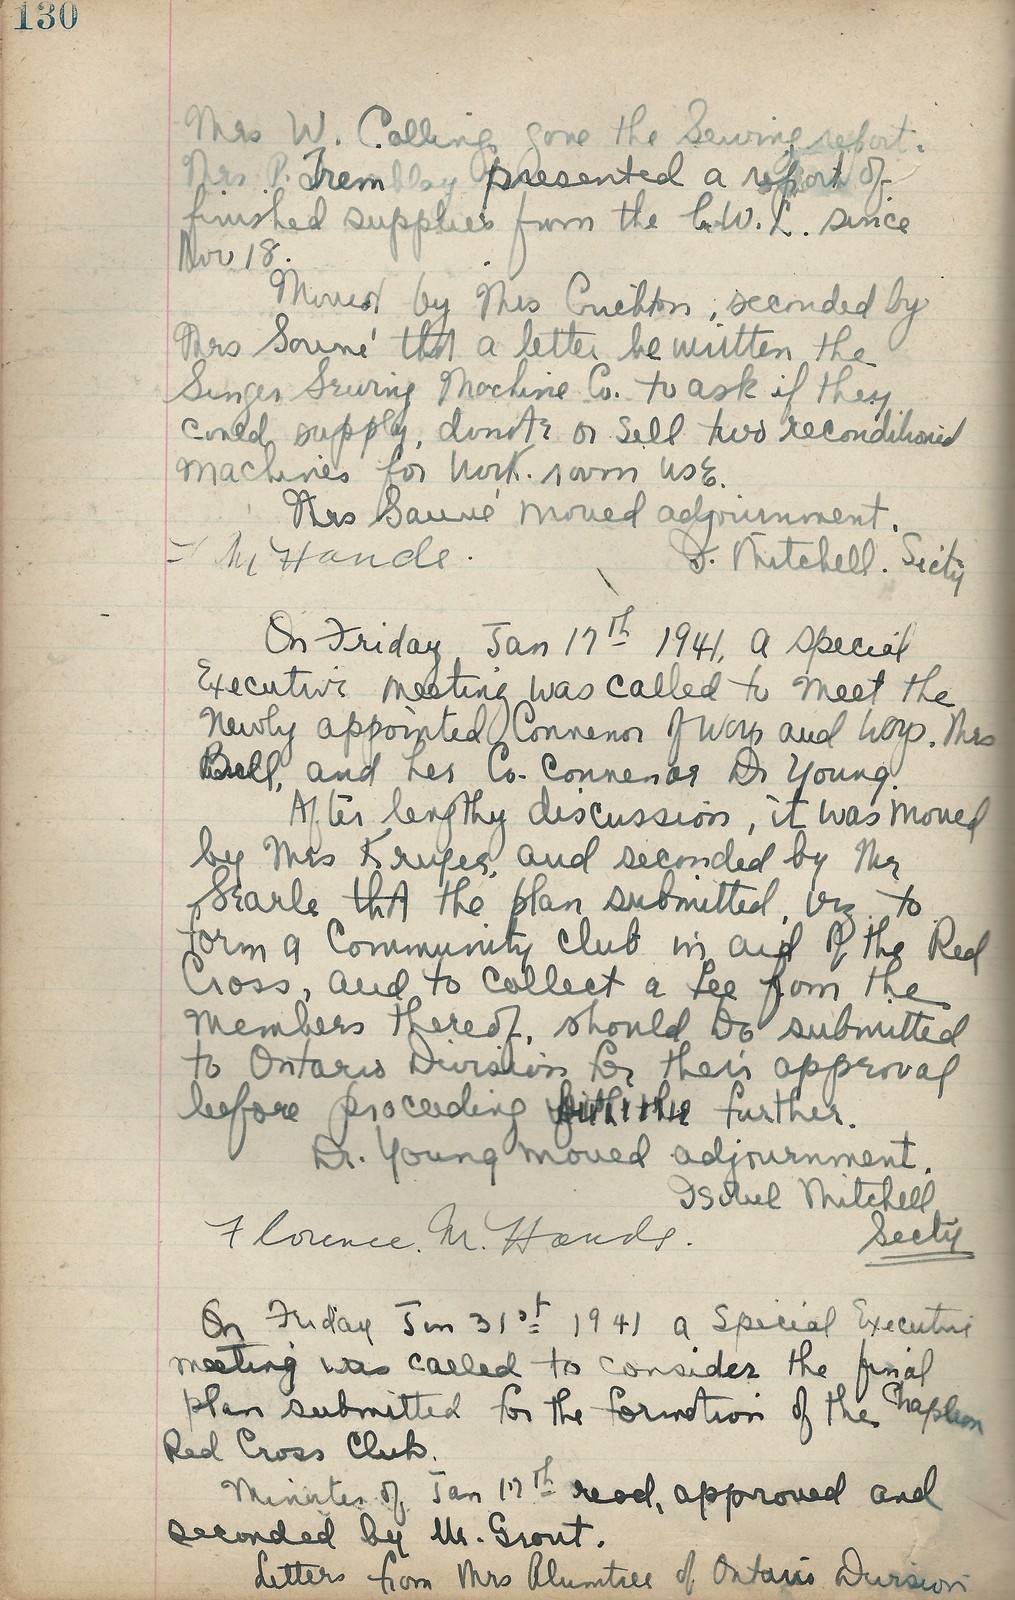 130
Mrs W. Collings gave the Sewing report.
Mrs P. Tremblay presented a report of
finished supplies from the C.W.L. since
Nov 18.
Moved by Mrs Crichton, seconded by
Mrs that a letter be written the
Singer Sewing Machine Co. to ask if they
could supply, donate or sell two reconditioned
machines for work room use.
Mrs moved adjournment.
M Hands. I. Mitchell. Secty
On Friday Jan 17th 1941, a special
Executive meeting was called to meet the
newly appointed Convenor of Ways and Ways. Mrs
Bell, and her Co-convenor Dr Young.
After lengthy discussion, it was moved
by Mrs Kruger, and seconded by Mr
Searle that the plan submitted, viz to
form a Community club in aid of the Red
Cross, and to collect a fee from the
members thereof, should be submitted
to Ontario Division for their approval
before proceeding further.
Dr. Young moved adjournment.
Isobel Mitchell
Florence. M. Hands. Secty
On Friday Jan 31st 1941 a Special Executive
meeting was called to consider the final
plan submitted for the formation of the Chapleau
Red Cross Club.
Minutes of Jan 17th read, approved and
seconded by Mr. Grout.
Letters from Mrs Plumtree of Ontario Division